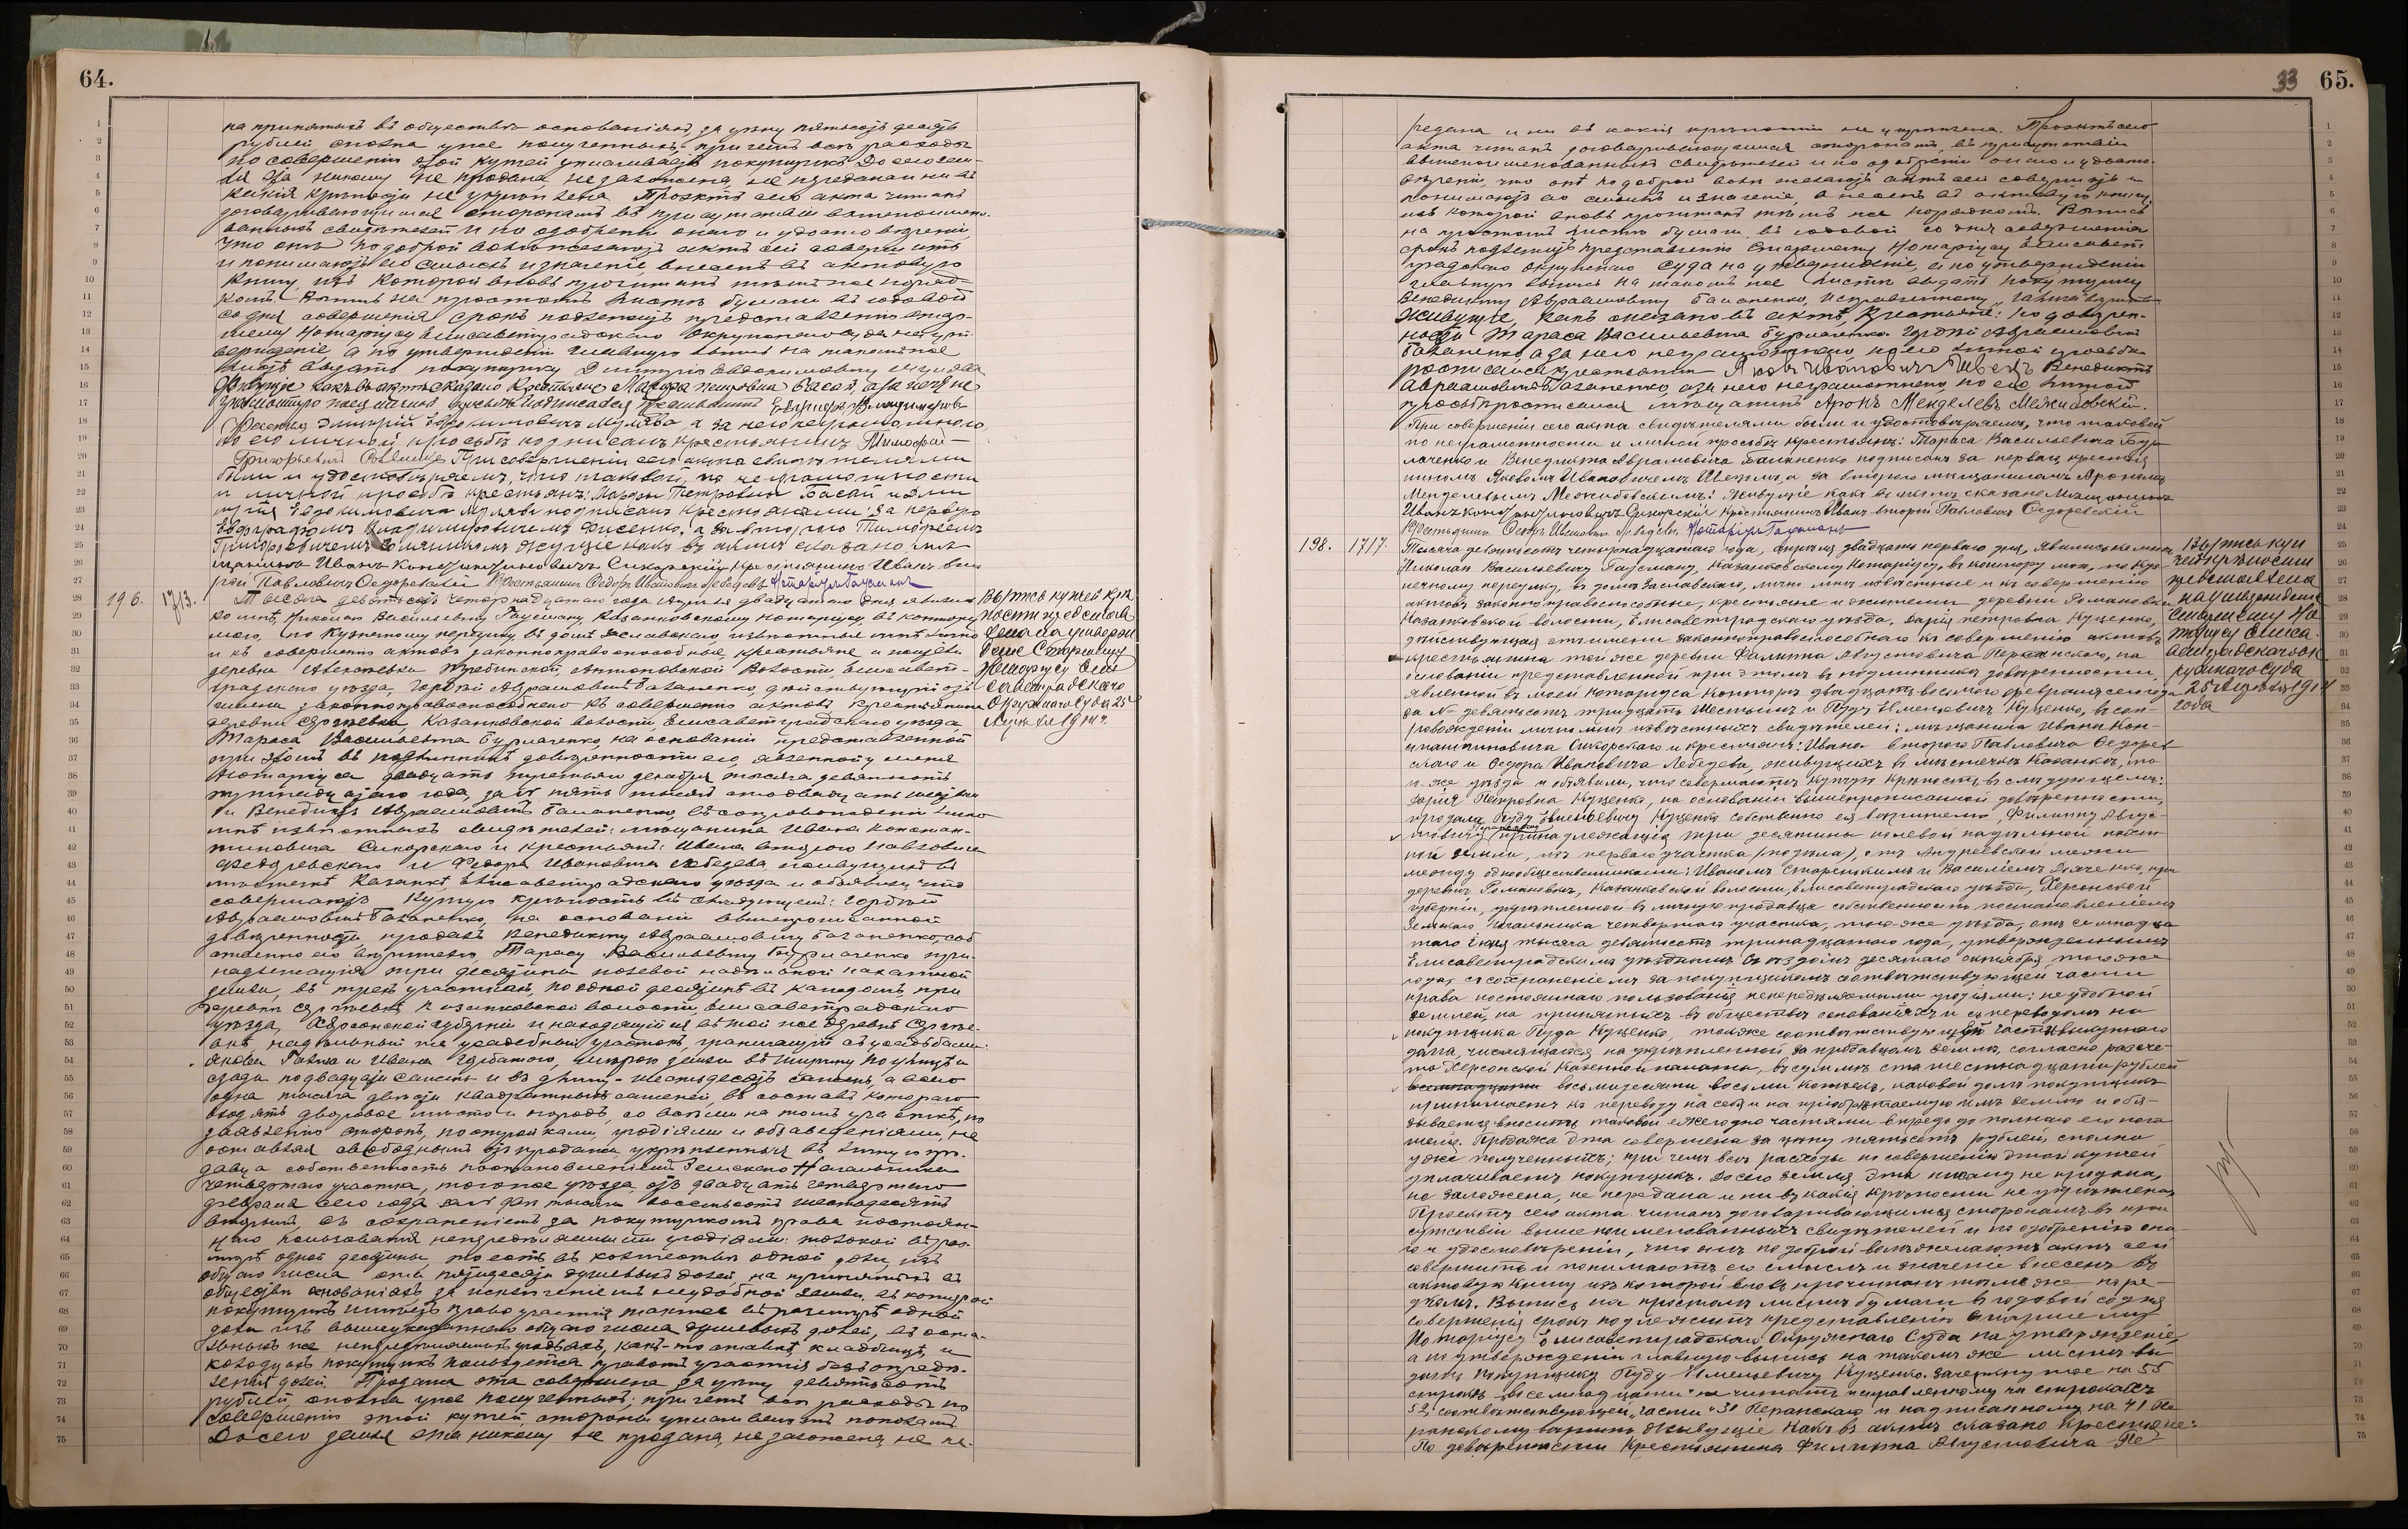 64.
на принятыхъ въ обществѣ основаніяхъ, за цѣну пятьсотъ десять
рублей, сполна уже полученныхъ, при чемъ всѣ расходы
по совершенію этой купчей уплачиваетъ покупщикъ. До сего зем-
ля эта никому не продана, не заложена, не передана и ни въ
какія крѣпости не укрѣплена. Проэктъ сего акта читанъ
договаривающимся сторонамъ въ присутствіи вышепоимено-
ванныхъ свидѣтелей и по одобреніи онаго и удостовѣреніи,
что онѣ по доброй волѣ желаютъ актъ сей совершить
и понимаютъ его смыслъ и значеніе, внесенъ въ актовую
книгу, изъ которой вновь прочитанъ тѣмъ же поряд-
комъ. Выпись на простомъ листѣ бумаги въ годовой
со дня совершенія срокъ подлежитъ представленію Стар-
шему Нотаріусу Елисаветградскаго Окружнаго суда на ут-
вержденіе, а по утвержденіи главную выпись на такомъ же
листѣ выдать покупщику Дмитрію Евдокимовичу
Живущіе какъ въ актѣ сказано Крестьяне Марфа Петровна Басай, а за нее не
грамотную по ея личной просьбѣ подписался крестьянинъ Евграфъ Владиміровъ
Фисенко Дмитрій Евдокимовичъ а за него неграмотного
по его личной просьбѣ подписалъ крестьянинъ Тимофей
Григорьевичъ При совершеніи сего акта свидѣтелями
были и удостовѣряемъ, что таковой, по неграмотности
и личной просьбѣ крестьянъ: Марфы Петровны Басай и Дми
трія Евдокимовича подписанъ крестьянами: за первую
Евграфомъ Владиміровичемъ Фисенко, а за второго Тимофеемъ
Григорьевичемъ живущіе какъ въ актѣ сказано, мѣ
щанинъ Иванъ Константиновичъ Сикорскій крестьянинъ Иванъ вто
рой Павловичъ Федоревскій Крестьянинъ Федоръ Ивановичъ Лебедевъ Нотаріусъ Гаусманъ
196. 1713. Тысяча девятьсотъ четырнадцатаго года Апрѣля двадцатаго дня явились
ко мнѣ, Николаю Васильевичу Гаусману, Казанковскому Нотаріусу, въ контору
мою, по Кузнечному переулку, въ домѣ Заславскаго, извѣстные мнѣ лично
и къ совершенію актовъ законноправоспособные, крестьяне и жители
деревни Антоновской Волости, Елисавет-
градскаго уѣзда, Гордѣй Авраамовичъ Баланенко, дѣйствующій отъ
имени законноправоспособнаго къ совершенію актовъ крестьянина
деревни Сергѣевки, Казанковской волости, Елисаветградскаго уѣзда,
Тараса Васильевича Бурлаченко, на основаніи представленной
при этомъ въ подлинникѣ довѣренности его, явленной у меня
Нотаріуса двадцать третьяго декабря тысяча девятьсотъ
тринадцатаго года, за № пять тысячъ сто двадцать
и Венедиктъ Авраамовичъ Баланенко, въ сопровожденіи лично
мнѣ извѣстныхъ свидѣтелей: мѣщанина Ивана Констан-
тиновича Сикорскаго и крестьянъ: Ивана второго Павловича
Федоревскаго и Федора Ивановича Лебедева, живущихъ въ
мѣстечкѣ Казанкѣ, Елисаветградскаго уѣзда и объявили, что
совершаютъ купчую крѣпость въ слѣдующемъ: Гордѣй
Авраамовичъ Баланенко, на основаніи вышепрописанной
довѣренности, продалъ Венедикту Авраамовичу Баланенко, соб-
ственно его вѣрителю, Тарасу Васильевичу Бурлаченко при-
надлежащія три десятины полевой надѣльной пахатной
земли, въ трехъ участкахъ, по одной десятинѣ въ каждомъ, при
деревнѣ Сергѣевкѣ, Казанковской волости, Елисаветградскаго
уѣзда, Херсонской губерніи и находящійся въ той же деревнѣ Сергѣе-
вкѣ надѣльный же усадебный участокъ, граничащій съ усадьбами:
Якова и Ивана мѣрою земли въ ширину по улицѣ и
сзади по двадцати саженъ и въ длину - шестьдесятъ саженъ, а всего
одна тысяча двѣсти квадратныхъ саженей, въ составъ котораго
входятъ дворовое мѣсто и огородъ, со всѣми на томъ участкѣ, по
заявленію сторонъ, постройками, угодіями и обзаведеніями, не
оставляя свободнымъ отъ продажи укрѣпленныхъ въ личную про-
давца собственность постановленіемъ Земскаго Начальника
четвертаго участка, того же уѣзда, отъ двадцать четвертаго
февраля сего года за № тысячи восемьсотъ шестьдесятъ
вторымъ, съ сохраненіемъ за покупщикомъ права постоян-
наго пользованія непередѣляемыми угодіями: толокой въ раз-
мѣрѣ одной десятины, то есть въ количествѣ одной доли, изъ
общаго числа ста пятидесяти душевыхъ долей, на принятыхъ въ
обществѣ основаніяхъ, за исключеніемъ неудобной земли, въ которой
покупщикъ имѣетъ право участія также въ размѣрѣ одной
доли изъ вышеуказаннаго общаго числа душевыхъ долей, въ осталь-
ныхъ же непередѣляемыхъ угодьяхъ, какъ-то: ставкѣ, кладбищѣ и
колодцахъ покупщикъ пользуется правомъ участія безъ опредѣ-
ленія долей. Продажа эта совершена за цѣну девятьсотъ
рублей, сполна уже полученныхъ; при чемъ всѣ расходы по
совершенію этой купчей стороны уплачиваютъ пополамъ.
До сего земля эта никому не продана, не заложена, не пе-
Выпись купчей крѣ
пости представ
лена на утверж
деніе Старшему
Нотаріусу Ели
саветградскаго
Окружного Суда 25
Апрѣля 1914 г.
33 65.
редана и ни въ какія крѣпости не укрѣплена. Проэктъ сего
акта читанъ договаривающимся сторонамъ, въ присутствіи
вышепоименованныхъ свидѣтелей и по одобреніи онаго и удосто-
вѣреніи, что онѣ по доброй волѣ желаютъ актъ сей совершить и
понимаютъ его смыслъ и значеніе, внесенъ въ актовую книгу,
изъ которой вновь прочитанъ тѣмъ же порядкомъ. Выпись
на простомъ листѣ бумаги въ годовой со дня совершенія
срокъ подлежитъ представленію Старшему Нотаріусу Елисавет-
градскаго окружнаго Суда на утвержденіе, а по утвержденіи
главную выпись на такомъ же листѣ выдать покупщику
Венедикту Авраамовичу Баланенко. Исправленному
Живущіе, какъ сказано въ актѣ, Крестьяне: по довѣрен-
ности Тараса Васильевича Бурлаченко Гордѣй Авраамовичъ
Баланенко, а за него неграмотнаго, по его личной просьбѣ
росписался крестьянинъ Яковъ Ивановичъ Швецъ Венедиктъ
Авраамовичъ Баланенко, а за него неграмотнаго, по его личной
просьбѣ росписался мѣщанинъ Аронъ Менделевъ Межибовскій.
При совершеніи сего акта свидѣтелями были и удостовѣряемъ, что таковой
по неграмотности и личной просьбѣ крестьянъ: Тараса Васильевича Бур
лаченко и Венедикта Авраамовича Баланенко подписанъ за первого крестья
ниномъ Яковомъ Ивановичемъ Швецомъ, а за второго мѣщаниномъ Арономъ
Менделевымъ Межибовскимъ: Живущіе какъ въ актѣ сказано Мѣщанинъ
Иванъ Константиновичъ Сикорскій Крестьянинъ Иванъ второй Павловичъ Федоревскій
Крестьянинъ Федоръ Ивановичъ Лебедевъ. Нотаріусъ Гаусманъ
198. 1717. Тысяча девятьсотъ четырнадцатаго года, апрѣля двадцать перваго дня, явились ко мнѣ
Николаю Васильевичу Гаусману, Казанковскому Нотаріусу, въ контору мою, по Куз-
нечному переулку, въ домѣ Заславскаго, лично мнѣ извѣстные и къ совершенію
актовъ законно правоспособные, крестьяне и жители деревни Романовки
Казанковской волости, Елисаветградскаго уѣзда, Дарія Петровна Куценко,
дѣйствующая отъ имени законноправоспособнаго къ совершенію актовъ
крестьянина той же деревни Филиппа Августовича Перанскаго, на
основаніи представленной при этомъ въ подлинникѣ довѣренности,
явленной въ моей Нотаріуса Конторѣ двадцать восьмого февраля сего года
за № девятьсотъ тридцать шестымъ и Пудъ Емельевичъ Куценко, въ соп-
ровожденіи лично мнѣ извѣстныхъ свидѣтелей: мѣщанина Ивана Кон-
стантиновича Сикорскаго и крестьянъ: Ивана второго Павловича Федорев
скаго и Федора Ивановича Лебедева, живущихъ въ мѣстечкѣ Казанкѣ, то
го-же уѣзда и объявили, что совершаютъ купчую крѣпость въ слѣдующемъ:
Дарія Петровна Куценко, на основаніи вышепрописанной довѣренности,
продала Пуду Емельевичу Куценко собственно ея вѣрителю, Филиппу Авгус-
товичу Перанскому принадлежащія три десятины полевой надѣльной пахат
ной земли, изъ перваго участка (подѣла), отъ Андреевской межи
между однообщественниками: Иваномъ Старенькимъ и Василіемъ Дьяченко, при
деревнѣ Романовкѣ, Казанковской волости, Елисаветградскаго уѣзда, Херсонской
губерніи, укрѣпленной въ личную продавца собственность постановленіемъ
Земскаго Начальника четвертаго участка, того-же уѣзда, отъ семнадца
таго Іюня тысяча девятьсотъ тринадцатаго года, утвержденнымъ
Елисаветградскимъ уѣзднымъ Съѣздомъ десятаго октября того же
года, съ сохраненіемъ за покупщикомъ соотвѣтствующей части
права постояннаго пользованія непередѣляемыми угодіями: неудобной
землей, на принятыхъ въ обществѣ основаніяхъ и съ переводомъ на
покупщика Пуда Куценко, также соотвѣтствующей части выкупного
долга, числящагося на укрѣпленной за продавцомъ землѣ, согласно разсче-
та Херсонской Казенной палаты, въ суммѣ ста шестнадцати рублей
восемнадцати восьмидесяти восьми копѣекъ, каковой долгъ покупщикъ
принимаетъ къ переводу на себя и на пріобрѣтаемую имъ землю и обя-
зывается вносить таковой ежегодно частями впредь до полнаго его пога
шенія. Продажа эта совершена за цѣну пятьсотъ рублей, сполна
уже полученныхъ; при чемъ всѣ расходы по совершенію этой купчей
уплачиваетъ покупщикъ. До сего земля эта никому не продана,
не заложена, не передана и ни въ какія крѣпости не укрѣплена.
Проектъ сего акта читанъ договаривающимся сторонамъ въ при
сутствіи выше поименованныхъ свидѣтелей и по одобренію она-
го и удостовѣреніи, что онѣ по доброй волѣ желаютъ актъ сей
совершить и понимаютъ его смыслъ и значеніе внесенъ въ
актовую книгу изъ которой вновь прочитанъ тѣмъ же поря-
дкомъ. Выпись на простомъ листѣ бумаги въ годовой со дня
совершенія срокъ подлежитъ представленію Старшему
Нотаріусу Елисаветградскаго Окружнаго Суда на утвержденіе,
а по утвержденіи главную выпись на такомъ же листѣ вы-
дать покупщику Пуду Емельевичу Куценко. Зачеркнутое на 55
строкѣ „восемнадцати" не читать исправленному на строкахъ
52, соотвѣтствующей „части" 31 Перанскаго и надписанному на 41 Пе
ранскому вѣрить Живущіе какъ въ актѣ сказано крестьяне:
По довѣренности Крестьянина Филиппа Августовича Пе-
Выпись куп
чей крѣпости
представлена
на утвержденіе
Старшему Но
таріусу Елиса
ветградскаго Ок
ружного Суда
25 Апрѣля 1914
года